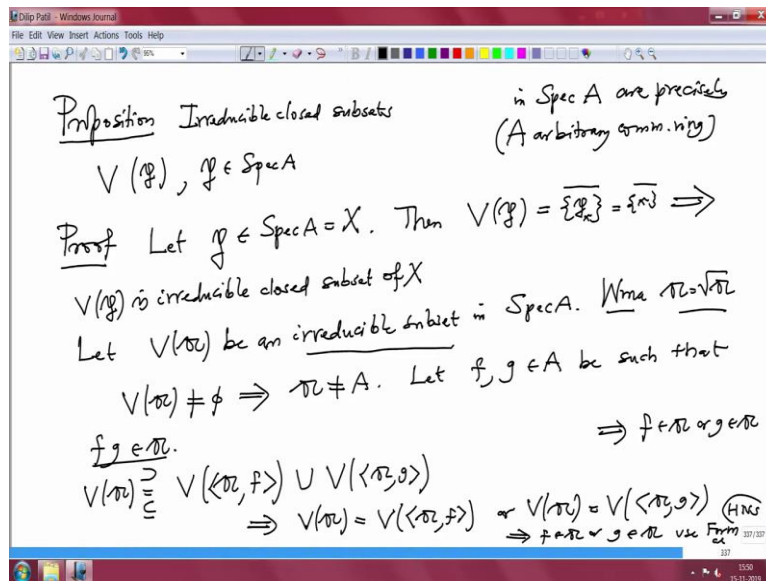 Dilip Patil - Windows Journal
File Edit View Insert Actions Tools Help
95%
Proposition Irreducible closed subsets in Spec A are precisely
(A arbitrary comm. ring)
V(𝔭), 𝔭 ∈ Spec A
Proof Let 𝔭 ∈ Spec A = X. Then V(𝔭) = \overline{{𝔭_x}} = \overline{{x}} ⇒
V(𝔭) is irreducible closed subset of X
Let V(𝔞) be an irreducible subset in Spec A. Wma 𝔞 = √𝔞
V(𝔞) ≠ ∅ ⇒ 𝔞 ≠ A. Let f, g ∈ A be such that
fg ∈ 𝔞. ⇒ f ∈ 𝔞 or g ∈ 𝔞
V(𝔞) ⊇ = ⊆ V(<𝔞, f>) ∪ V(<𝔞, g>)
⇒ V(𝔞) = V(<𝔞, f>) or V(𝔞) = V(<𝔞, g>) (HNS
⇒ f ∈ 𝔞 or g ∈ 𝔞 use Form
337/337
337
15:50
15-11-2019